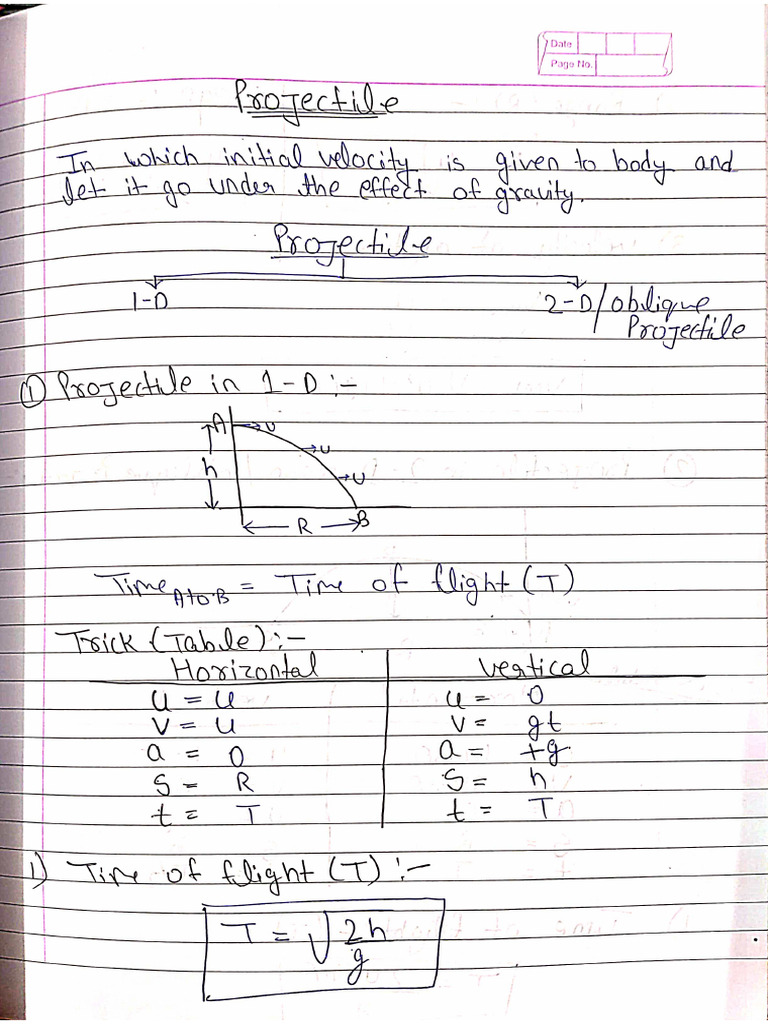 Date
Page No.
Projectile
In which initial velocity is given to body and
let it go under the effect of gravity.
Projectile
1-D 2-D/oblique
Projectile
① Projectile in 1-D :-
A u
u
h
u
R B
Time A to B = Time of flight (T)
Trick (Table) :-
Horizontal Vertical
u = u u = 0
v = u v = gt
a = 0 a = +g
S = R S = h
t = T t = T
1) Time of flight (T) :-
T = √2h/g